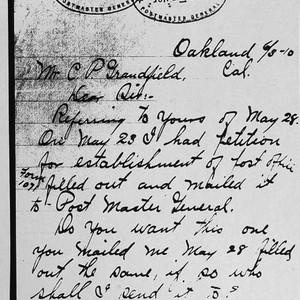 POSTMASTER GENERAL
POSTMASTER GENERAL
Oakland 6/3-10
Cal.
Mr C. P. Grandfield,
Dear Sir:-
Referring to Yours of May 28.
On May 23 I had petition
for establishment of post offic
Form
filled out and mailed it
to Post Master General.
Do you want this one
you mailed me May 28 filled
out the same, if so who
shall I send it to.